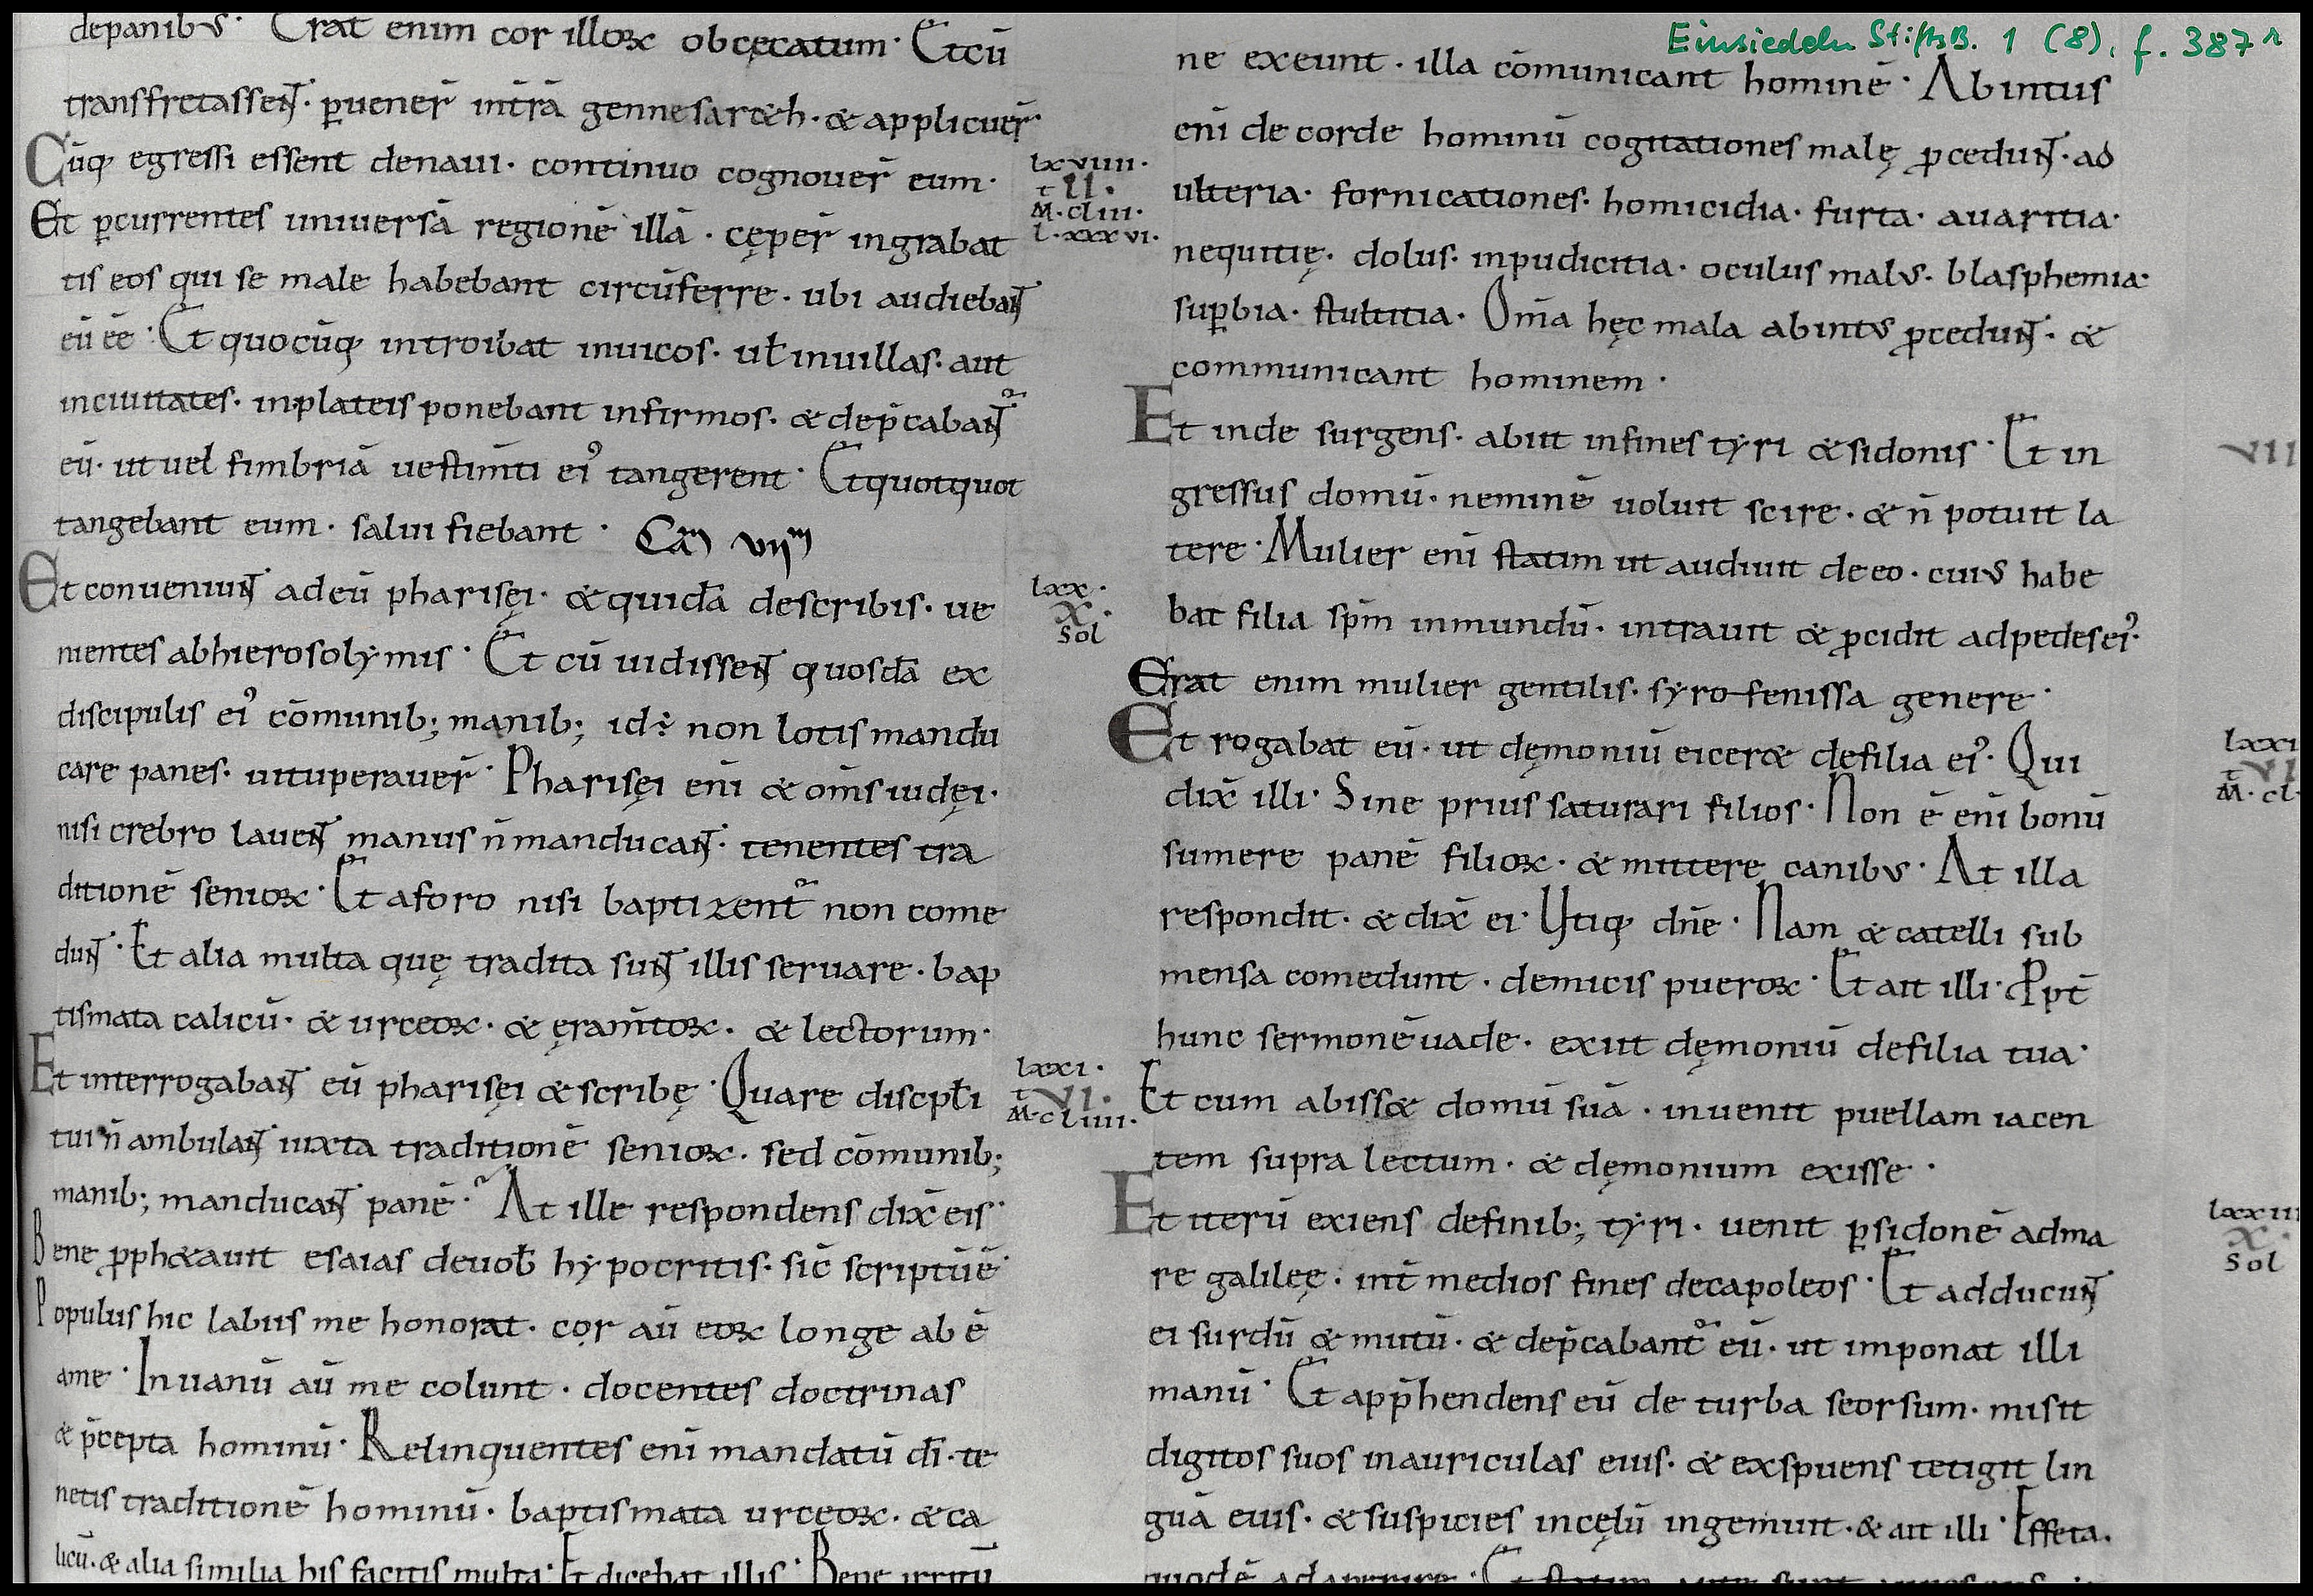 Einsiedeln StiftsB. 1 (8), f. 387r
depanibus· Erat enim cor illoꝝ obcęcatum· Et cū
transfretassent· ꝑuener̄ intrā gennesar&h· & applicuer̄·
Cūq; egressi essent denaui· continuo cognouer̄ eum·
lxviiii·
t II·
M·cliii·
l·xxxvi·
Et ꝑcurrentes uniuersā regionē illā· cęper̄ ingrabat
tis eos qui se male habebant circūferre· ubi audiebant
eū ēē· Et quocūq; introibat inuicos· uł inuillas· aut
inciuitates· inplateis ponebant infirmos· & dep̄cabant᷑
eū· ut uel fimbriā uestim̄ti eiꝰ tangerent· Et quotquot
tangebant eum· salui fiebant· Cam̄ vijm
Et conueniunt adeū pharisęi· & quidā describis· ue
lxx·
x·
Sol
nientes abhierosolymis· Et cū uidissent quosdā ex
discipulis eiꝰ cōmunib; manib; id÷ non lotis mandu
care panes· uituperauer̄· Pharisęi enī & om̄s iudęi·
nisi crebro lauent manus n̄ manducant· tenentes tra
ditionē senioꝝ· Et aforo nisi baptizent᷑ non come
dunt· Et alia multa quę tradita sunt illis seruare· bap
tismata calicū· & urceoꝝ· & ęram̄toꝝ· & lectorum·
Et interrogabant eū pharisęi & scribę· Quare discipłi
lxxi·
t VI·
M·cliiii·
tui n̄ ambulant iuxta traditionē senioꝝ· sed cōmunib;
manib; manducant panē· At ille respondens dix̄ eis·
Bene ꝓph&auit esaias deuob̄ hypocritis· sic̄ scriptū ē·
Populus hic labiis me honorat· cor aū eoꝝ longe ab ē
ame· In uanū aū me colunt· docentes doctrinas
& p̄cepta hominū· Relinquentes enī mandatū dī· te
netis traditionē hominū· baptismata urceoꝝ· & ca
licū· & alia similia his facitis multa· Et dicebat illis· Bene irritū
ne exeunt· illa cōmunicant hominē· Abintus
enī de corde hominū cogitationes malę ꝓcedunt· ad
ulteria· fornicationes· homicidia· furta· auaritia·
nequitię· dolus· inpudicitia· oculus malus· blasphemia·
suꝑbia· stultitia· Om̄a hęc mala abintus ꝓcedunt· &
communicant hominem·
Et inde surgens· abiit infines tyri & sidonis· Et in
VII
gressus domū· neminē uoluit scire· & n̄ potuit la
tere· Mulier enī statim ut audiuit deeo· cuius habe
bat filia sp̄m inmundū· intrauit & ꝓcidit adpedes eiꝰ·
Erat enim mulier gentilis· syro fenissa genere·
Et rogabat eū· ut dęmoniū eicer& defilia eiꝰ· Qui
lxxi
t VI
M·cl
dix̄ illi· Sine prius saturari filios· Non ē enī bonū
sumere panē filioꝝ· & mittere canibus· At illa
respondit· & dix̄ ei· Utiq; dn̄e· Nam & catelli sub
mensa comedunt· demicis pueroꝝ· Et ait illi· Ꝓpt̄
hunc sermonē uade· exiit dęmoniū defilia tua·
Et cum abiss& domū suā· inuenit puellam iacen
tem supra lectum· & dęmonium exisse·
Et iterū exiens definib; tyri· uenit ꝑsidonē adma
lxxiii
x·
Sol
re galilęę· int̄ medios fines decapoleos· Et adducunt
ei surdū & mutū· & dep̄cabant᷑ eū· ut imponat illi
manū· Et app̄hendens eū de turba seorsum· misit
digitos suos inauriculas eius· & exspuens tetigit lin
guā eius· & suspicies incęlū ingemuit· & ait illi· Effeta·
quodē adaperire· Et statim